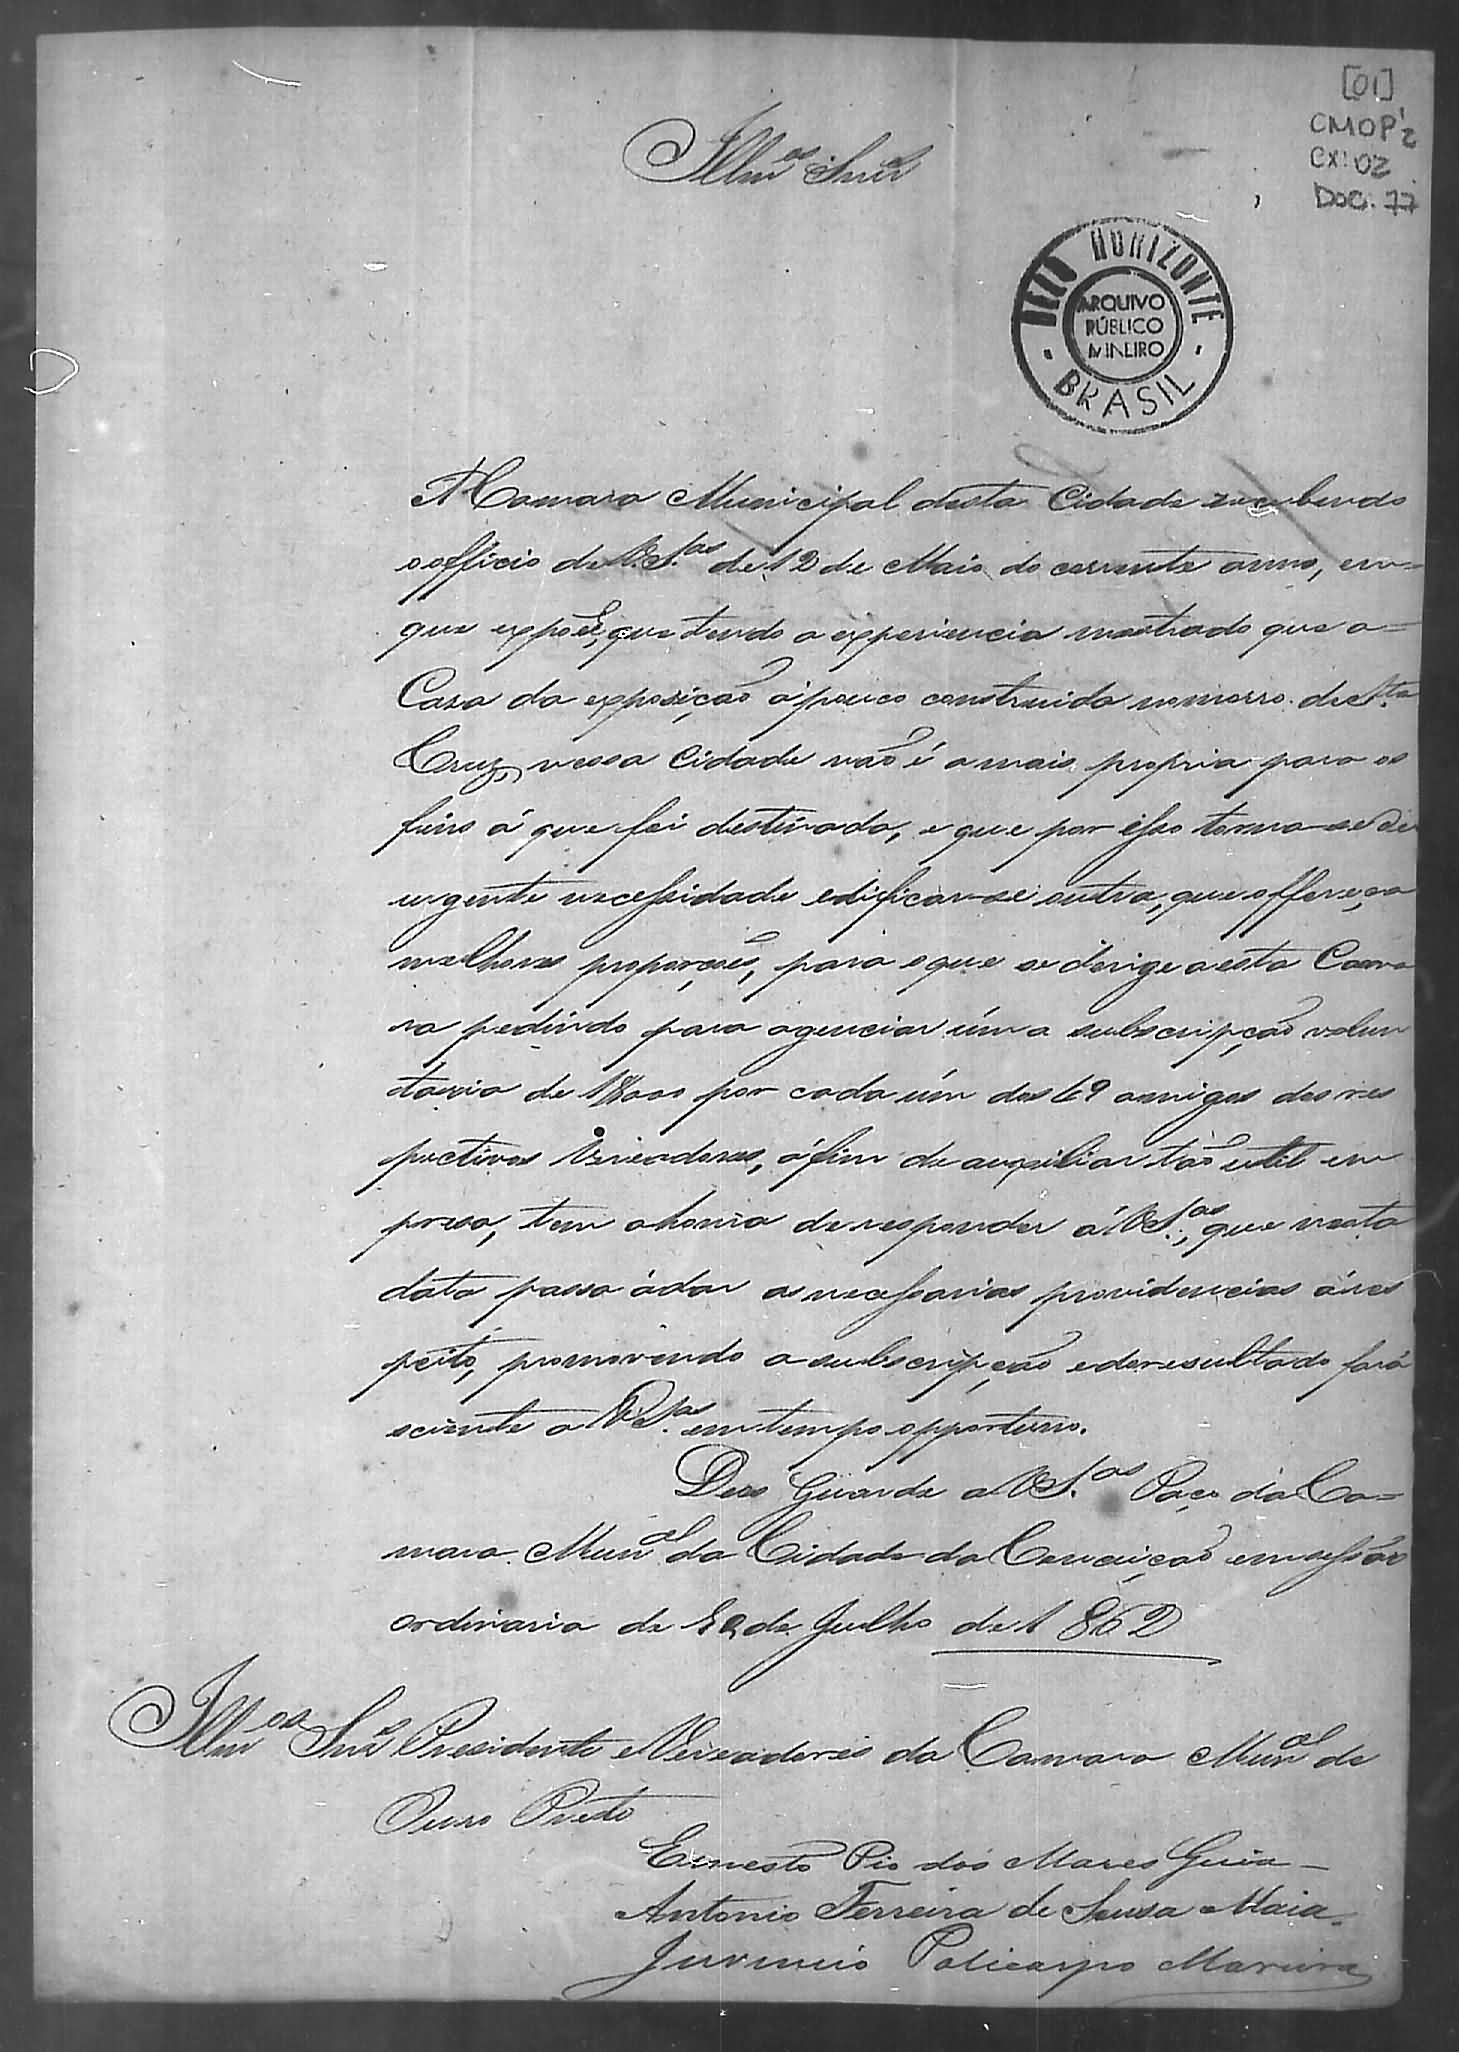 [01]
CMOP 2
CX: 02
DOC. 77
Illm.os Snrs
BELO HORIZONTE
ARQUIVO
PÚBLICO
MINEIRO
BRASIL
A Camara Municipal desta Cidade recebendo
o officio de V.S.as de 12 de Maio do corrente anno, em=
que expoẽ, que tendo a experiencia mostrado que a=
Casa da exposição á pouco construida no morro de S.ta
Cruz, nessa Cidade não é a mais propria para os
fins á que foi destinada, e que por isso torna-se de
urgente necessidade edificar-se outra, que offereça
melhores proporçoẽs, para o que se dirige a esta Cama
ra pedindo para agenciar úma subscripção volun
taria de 1$000 por cada úm dos 69 amigos dos res
pectivos Vereadores, áfim de auxiliar tão util em
presa, tem a honra de responder á V.S.as, que nesta
data passa á dar as necessarias providencias á res
peito, promovendo a subscripção e do resultado fará
sciente a V.S.as em tempo opportuno.
Deos Guarde a V.S.as Paço da Ca=
mara Mun.al da Cidade da Conceição em sessão
ordinaria de de Julho de 1862
Illm.os Snrs Presidente e Vereadores da Camara Mun.al de
Ouro Preto
Ernesto Pio dos Mares Guia
Antonio Ferreira de Sousa Maia
Juvencio Policarpo Moreira